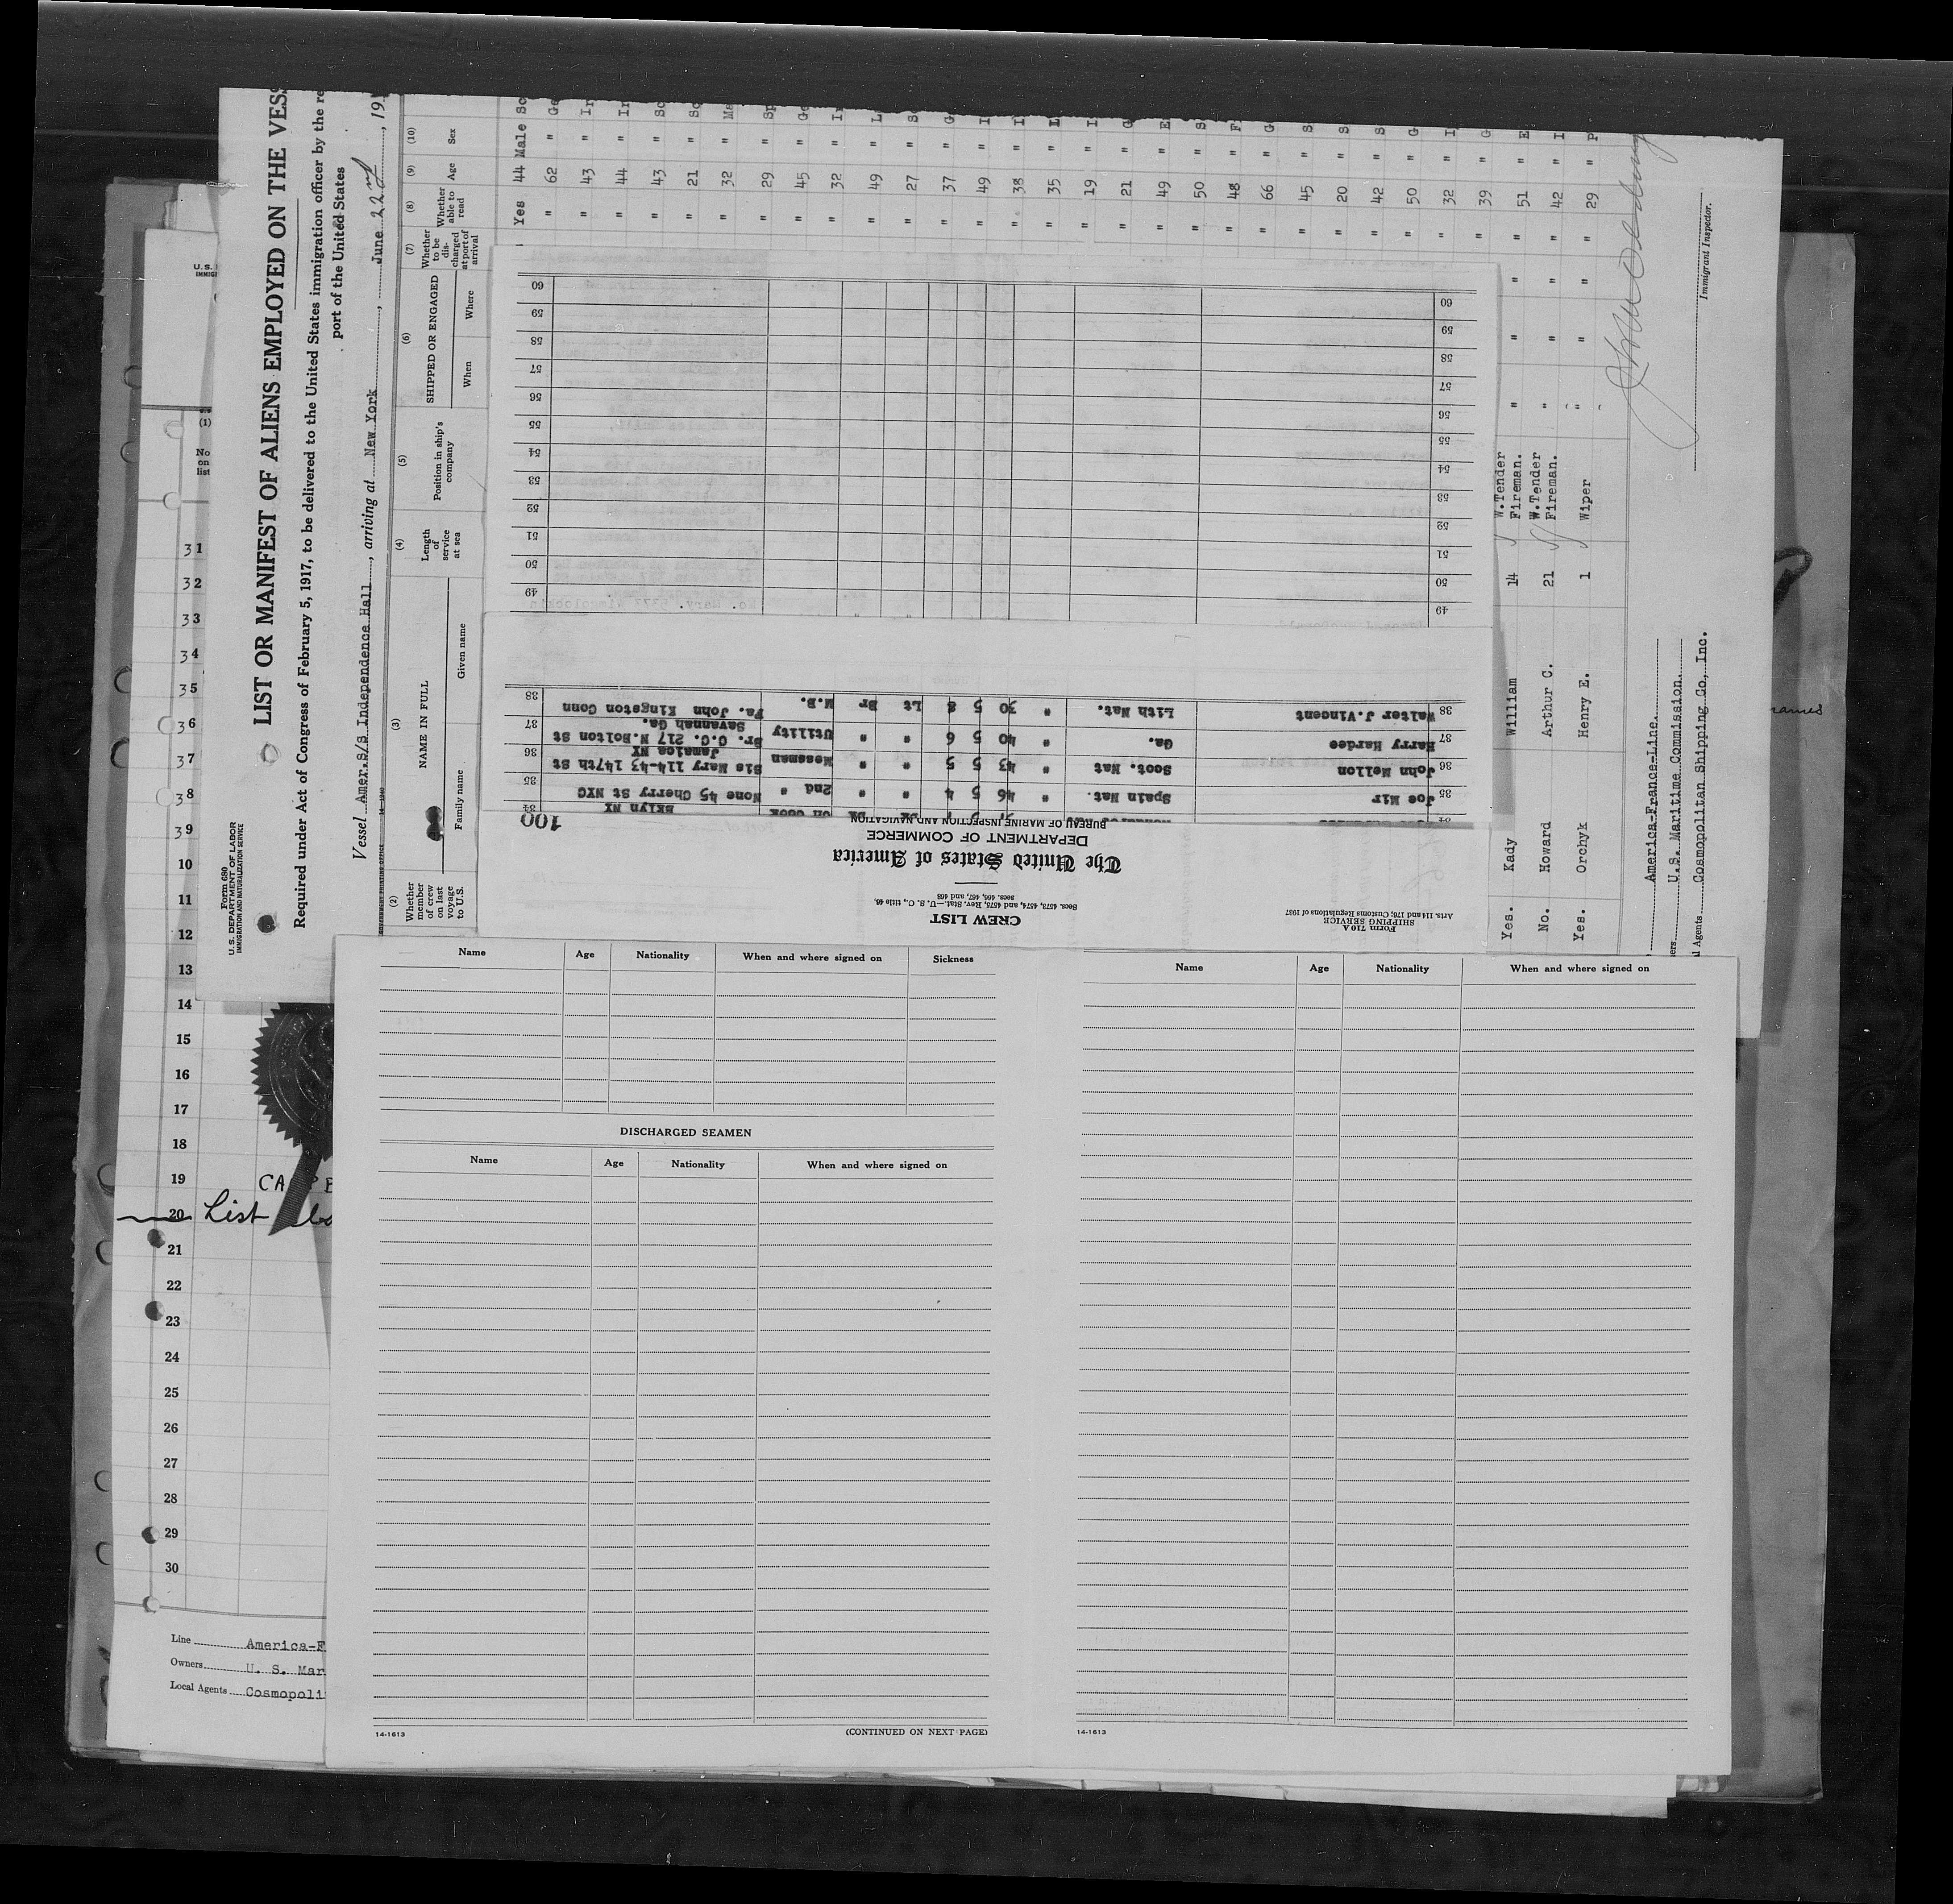 Form 680
U.S. DEPARTMENT OF LABOR
IMMIGRATION AND NATURALIZATION SERVICE
LIST OR MANIFEST OF ALIENS EMPLOYED ON THE VESS
Required under Act of Congress of February 5, 1917, to be delivered to the United States immigration officer by the re
port of the United States
Vessel Amer.S/S Independence Hall, arriving at New York, June 22, 19
(2) (3) (4) (5) (6) (7) (8) (9) (10)
Whether member of crew on last voyage to U.S.
NAME IN FULL
Family name Given name
Length of service at sea
Position in ship's company
SHIPPED OR ENGAGED
When Where
Whether to be discharged at port of arrival
Whether able to read
Age
Sex
Yes 44 Male Sc
" 62 " Ge
" 43 " Ir
" 44 " Ir
" 43 " Sc
" 21 " Sc
" 32 " Ma
" 29 " Sp
" 45 " Ge
" 32 " I
" 49 " L
" 27 " S
" 37 " G
" 49 " I
" 38 " I
" 35 " L
" 19 " I
" 21 " G
" 49 " E
" 50 " S
" 48 " F
" 66 " G
" 45 " S
" 20 " S
" 42 " S
" 50 " G
" 32 " I
" 39 " G
Yes. Kady William 14 W.Tender Fireman. " " " " 51 " E
No. Howard Arthur C. 21 W.Tender Fireman. " " " " 42 " I
Yes. Orchyk Henry E. 1 Wiper " " " " 29 " P
America-France-Line.
U.S. Maritime Commission.
Agents Cosmopolitan Shipping Co, Inc.
Immigrant Inspector.
Form 710 A
SHIPPING SERVICE
Arts. 114 and 176, Customs Regulations of 1937
CREW LIST
Secs. 4573, 4574, and 4575, Rev. Stat.—U. S. C., title 46,
secs. 466, 467, and 468
The United States of America
DEPARTMENT OF COMMERCE
BUREAU OF MARINE INSPECTION AND NAVIGATION
100
Bklyn NY
35 Joe Mir Spain Nat. " 46 5 4 " " 2nd " None 45 Cherry St NYC 35
36 John Mellon Scot. Nat " 43 5 5 " " Messman Sis Mary 114-43 147th St Jamaica NY 36
37 Harry Hardee Ga. " 40 5 6 " " Utility Br. C.C. 217 N.Bolton St Savannah Ga. 37
38 Walter J.Vincent Lith Nat. " 30 5 8 Lt Br M.B. Fa. John Kingston Conn 38
49 49
50 50
51 51
52 52
53 53
54 54
55 55
56 56
57 57
58 58
59 59
60 60
U.S.
(1)
No
on
list
31
32
33
34
35
36
37
38
39
10
11
12
13
14
15
16
17
18
19
20 List
21
22
23
24
25
26
27
28
29
30
Line America-F
Owners U. S. Mar
Local Agents Cosmopoli
names
Name Age Nationality When and where signed on Sickness
DISCHARGED SEAMEN
Name Age Nationality When and where signed on
14-1613 (CONTINUED ON NEXT PAGE)
Name Age Nationality When and where signed on
14-1613